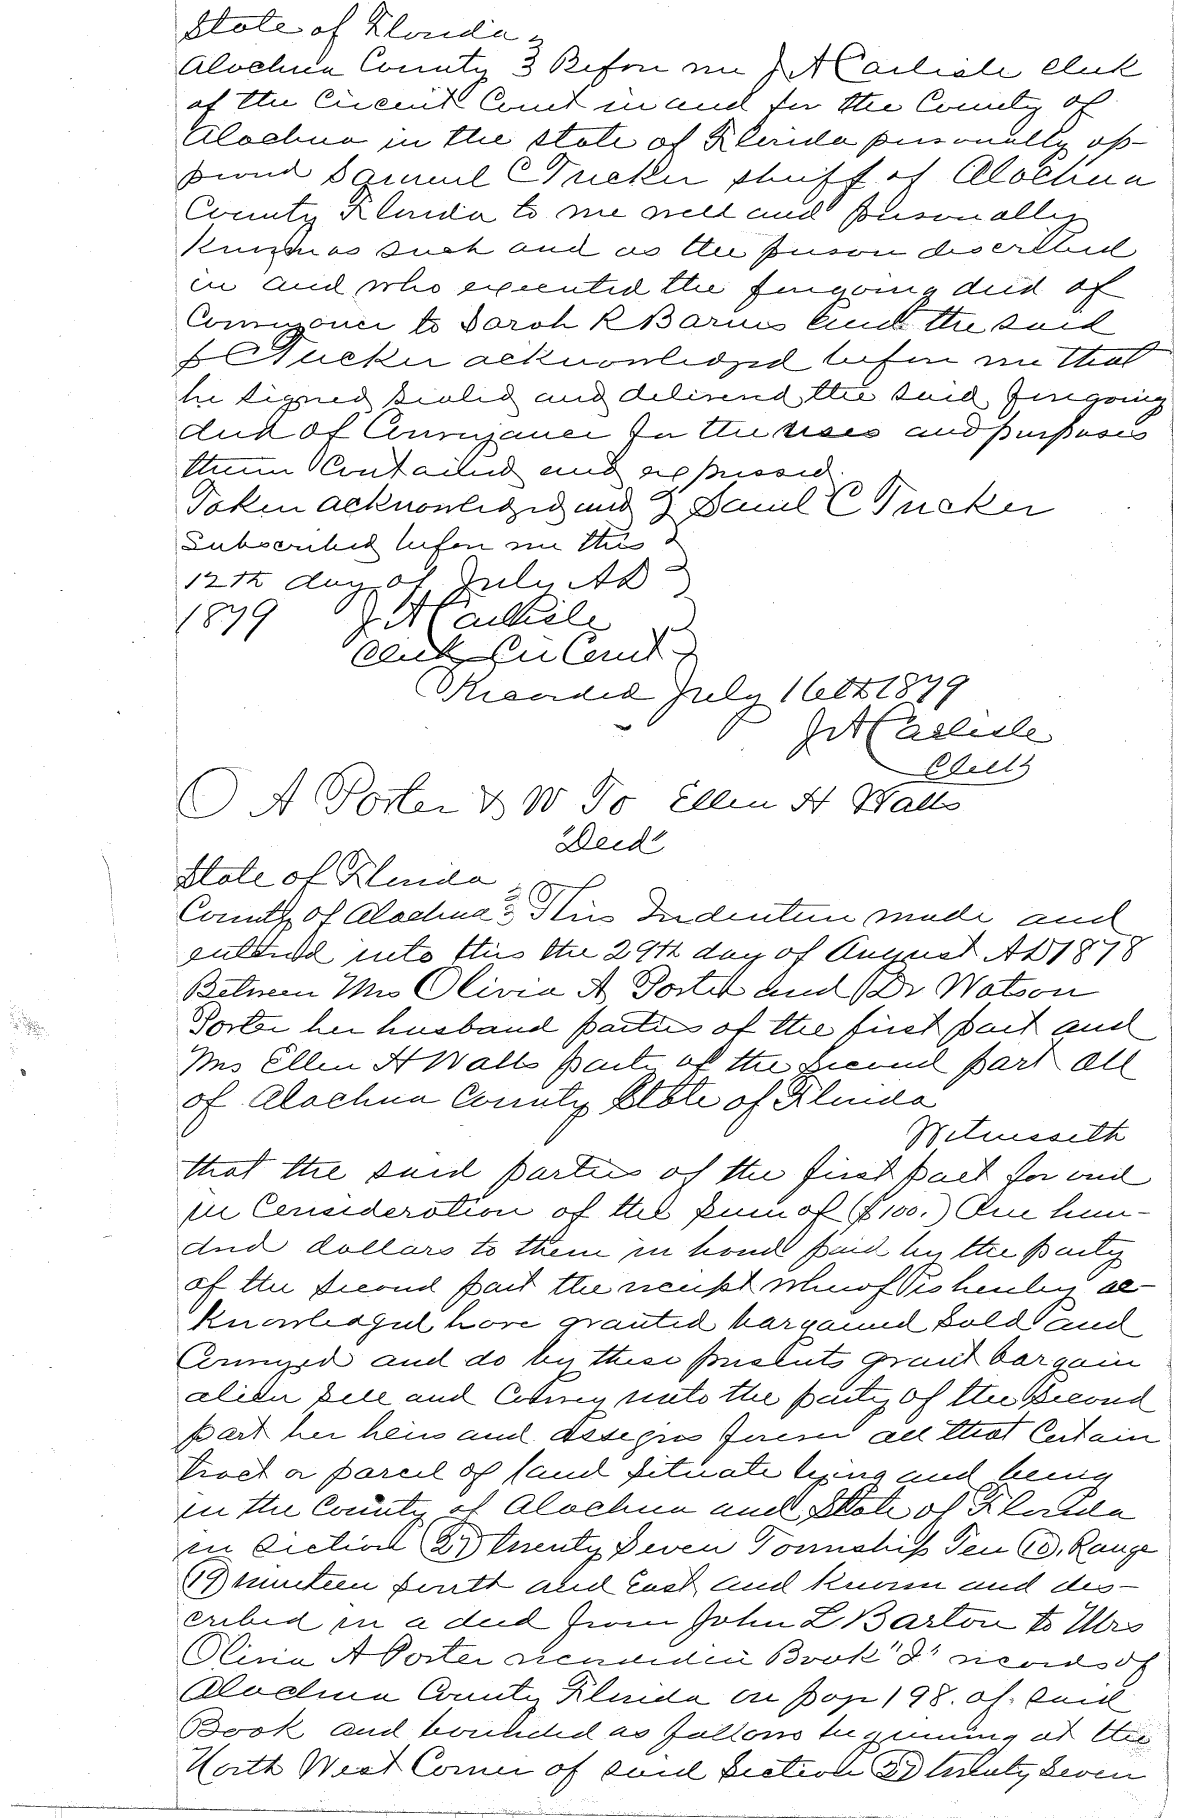 State of Florida
Alachua County } Before me J A Carlisle Clerk
of the Circuit Court in and for the County of
Alachua in the State of Florida personally ap-
peared Samuel C Tucker sheriff of Alachua
County Florida to me well and personally
known as such and as the person described
in and who executed the foregoing deed of
Conveyance to Sarah R Barnes and the said
S C Tucker acknowledged before me that
he signed sealed and delivered the said foregoing
deed of Conveyance for the uses and purposes
therein Contained and expressed.
Taken acknowledged and } Saml C Tucker
Subscribed before me this }
12th day of July AD }
1879 J A Carlisle }
Clerk Cir Court }
Recorded July 16th 1879
J A Carlisle
Clerk
O A Porter & W To Ellen H Watts
"Deed"
State of Florida
County of Alachua } This Indenture made and
entered into this the 29th day of August AD 1878
Between Mrs Olivia A Porter and Dr Watson
Porter her husband parties of the first part and
Mrs Ellen H Watts party of the second part all
of Alachua County State of Florida
Witnesseth
that the said parties of the first part for and
in Consideration of the sum of ($100.) One hun-
dred dollars to them in hand paid by the party
of the second part the receipt whereof is hereby ac-
knowledged have granted bargained Sold and
Conveyed and do by these presents grant bargain
alien sell and Convey unto the party of the Second
part her heirs and assigns forever all that Certain
tract or parcel of land situate lying and being
in the County of Alachua and State of Florida
in Section (27) twenty Seven Township Ten (10), Range
(19) nineteen south and East and known and des-
cribed in a deed from John L Barton to Mrs
Olivia A Porter recorded in Book "I" records of
Alachua County Florida on page 198. of. said
Book and bounded as follows beginning at the
North West Corner of said Section (27) twenty Seven